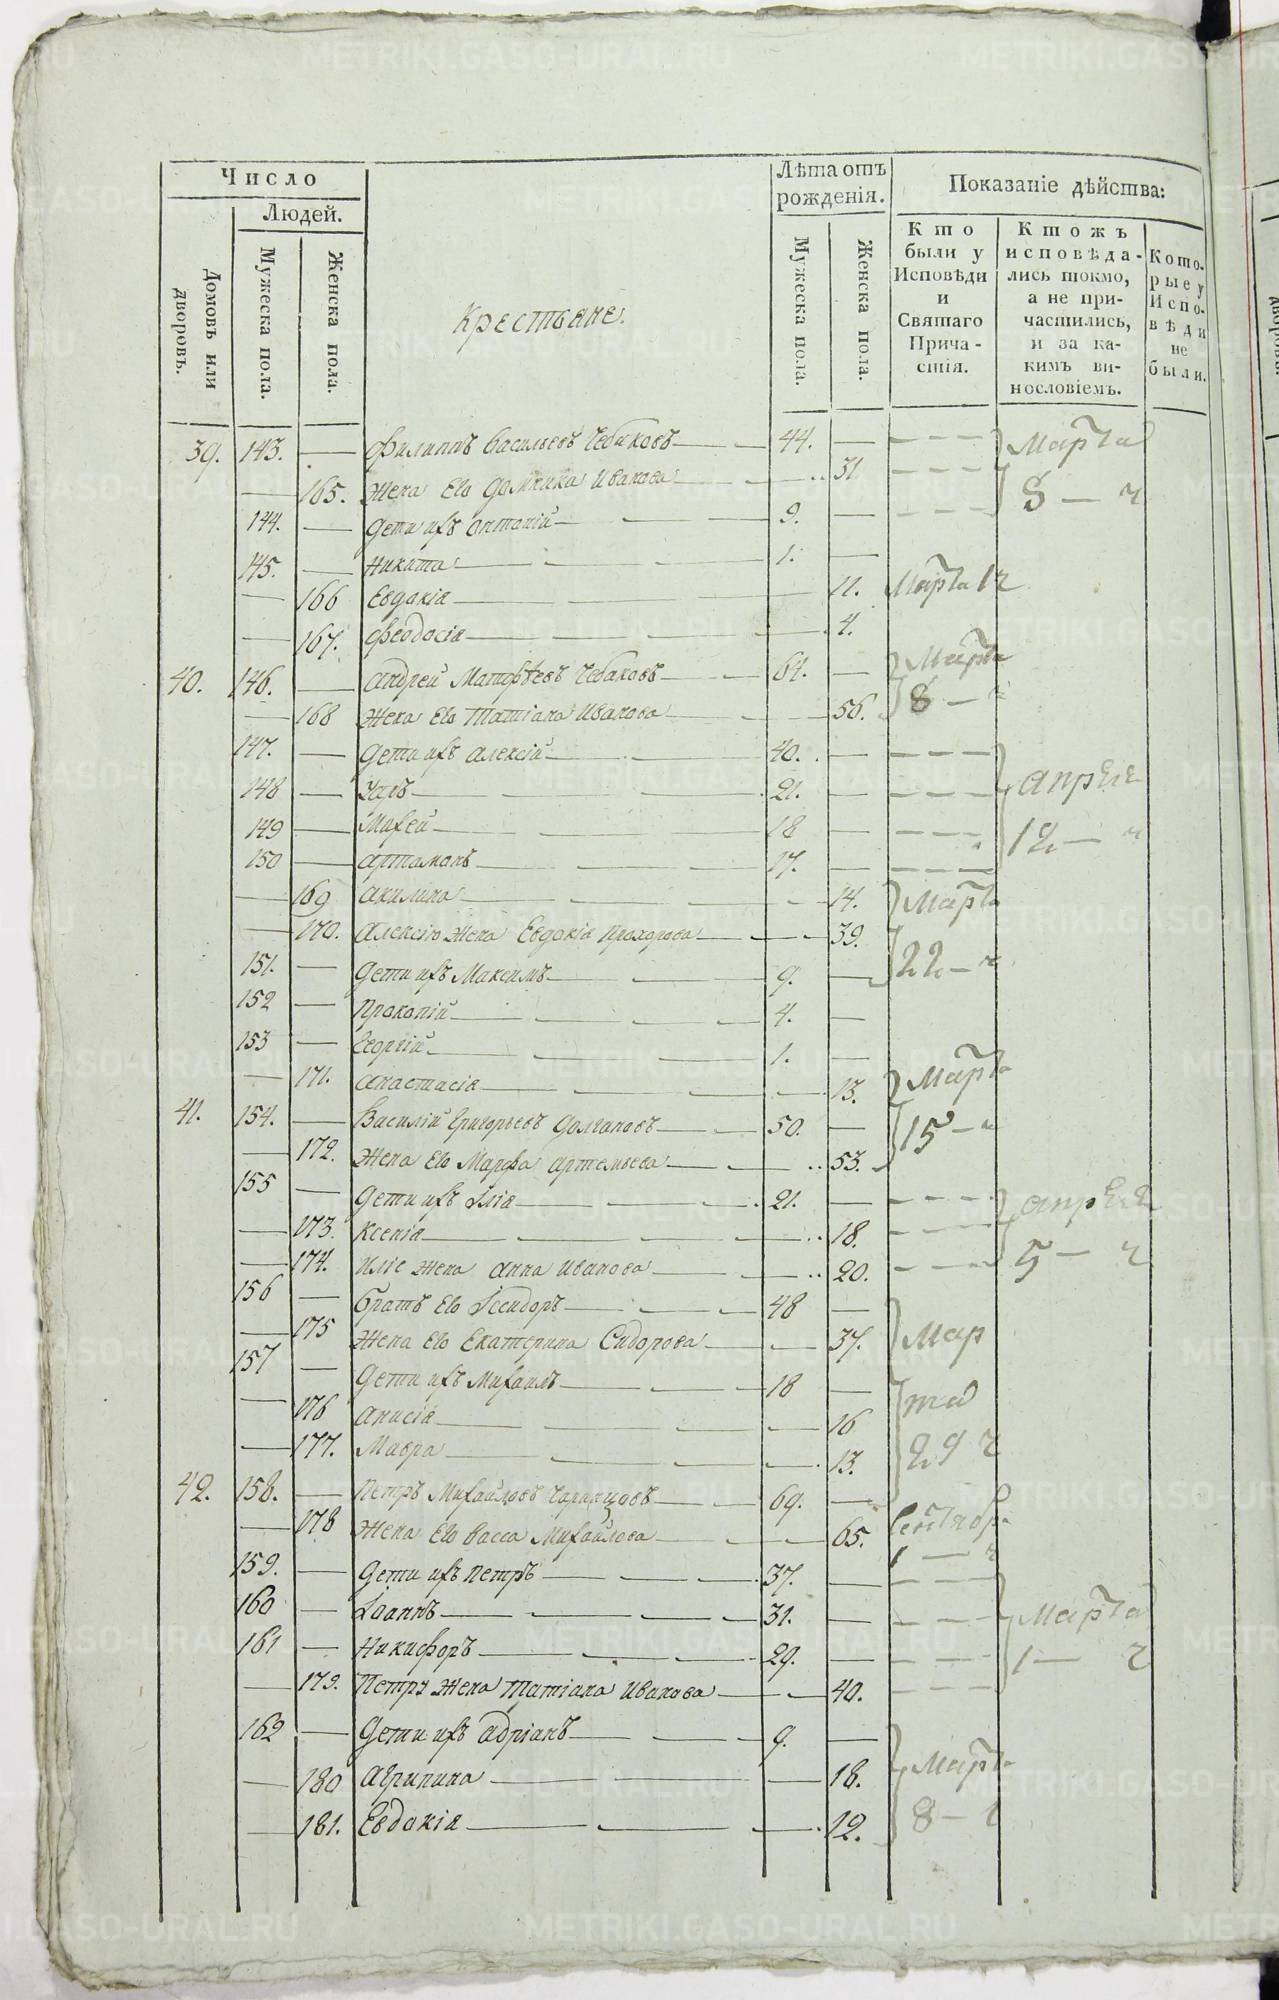 Число
Людей.
Домовъ или дворовъ.
Мужеска пола.
Женска пола.
Крестьяне.
Лѣта отъ рожденія.
Мужеска пола.
Женска пола.
Показаніе дѣйства:
Кто были у Исповѣди и Святаго Причастія.
Ктожъ исповѣдались токмо, а не причастились, и за какимъ винословіемъ.
Которые у Исповѣди не были.
39. 143. — Филиппъ Васильевъ Чебыковъ 44. — Марта
— 165. Жена Его Домника Иванова 31. 8 — ч
144. — Дети ихъ Антоній 9. —
145. — Никита 1. —
— 166 Евдокія 11. Марта 1 ч
— 167. Феодосія 4.
40. 146. — Андрей Матфѣевъ Чебаковъ 64. — Марта
— 168 Жена Его Татіана Иванова 56. 8 — ч
147. — Дети ихъ Алексій 40. — апреля
148 — Уаръ 21. —
149 — Мокей 18 — 12 — ч
150 — Артамонъ 17. —
— 169 Акилина 14. Марта
— 170. Алексію Жена Евдокія Прохорова 39.
151. — Дети ихъ Максимъ 9. — 22 — ч
152 — Прокопій 4. —
153 — Георгій 1. —
— 171. Анастасія 13. Марта
41. 154. — Василій Григорьевъ Долгановъ 50. — 15 — ч
— 172. Жена Его Марфа Артемьева 53.
155 — Дети ихъ Илія 21. — апреля
— 173. Ксенія 18.
— 174. Иліе Жена Анна Иванова 20. 5 — ч
156 — Братъ Его Ісидоръ 48 —
— 175 Жена Его Екатерина Сидорова 37. Мар
157 — Дети ихъ Михаилъ 18 — та
— 176 Анисія 16
— 177. Мавра 13. 29 ч
42. 158. — Петръ Михайловъ 69. —
— 178 Жена Его Васса Михайлова 65. Сентябр.
1 — ч
159. — Дети ихъ Петръ 37. —
160 — Іоаннъ 31. — Марта
161 — Никифоръ 29. — 1 — ч
— 179. Петру Жена Татіана Иванова 40.
162 — Дети ихъ Адріанъ 9. —
— 180 Агрипина 18. Марта
— 181. Евдокія 12. 8 — ч
METRIKI.GASO-URAL.RU